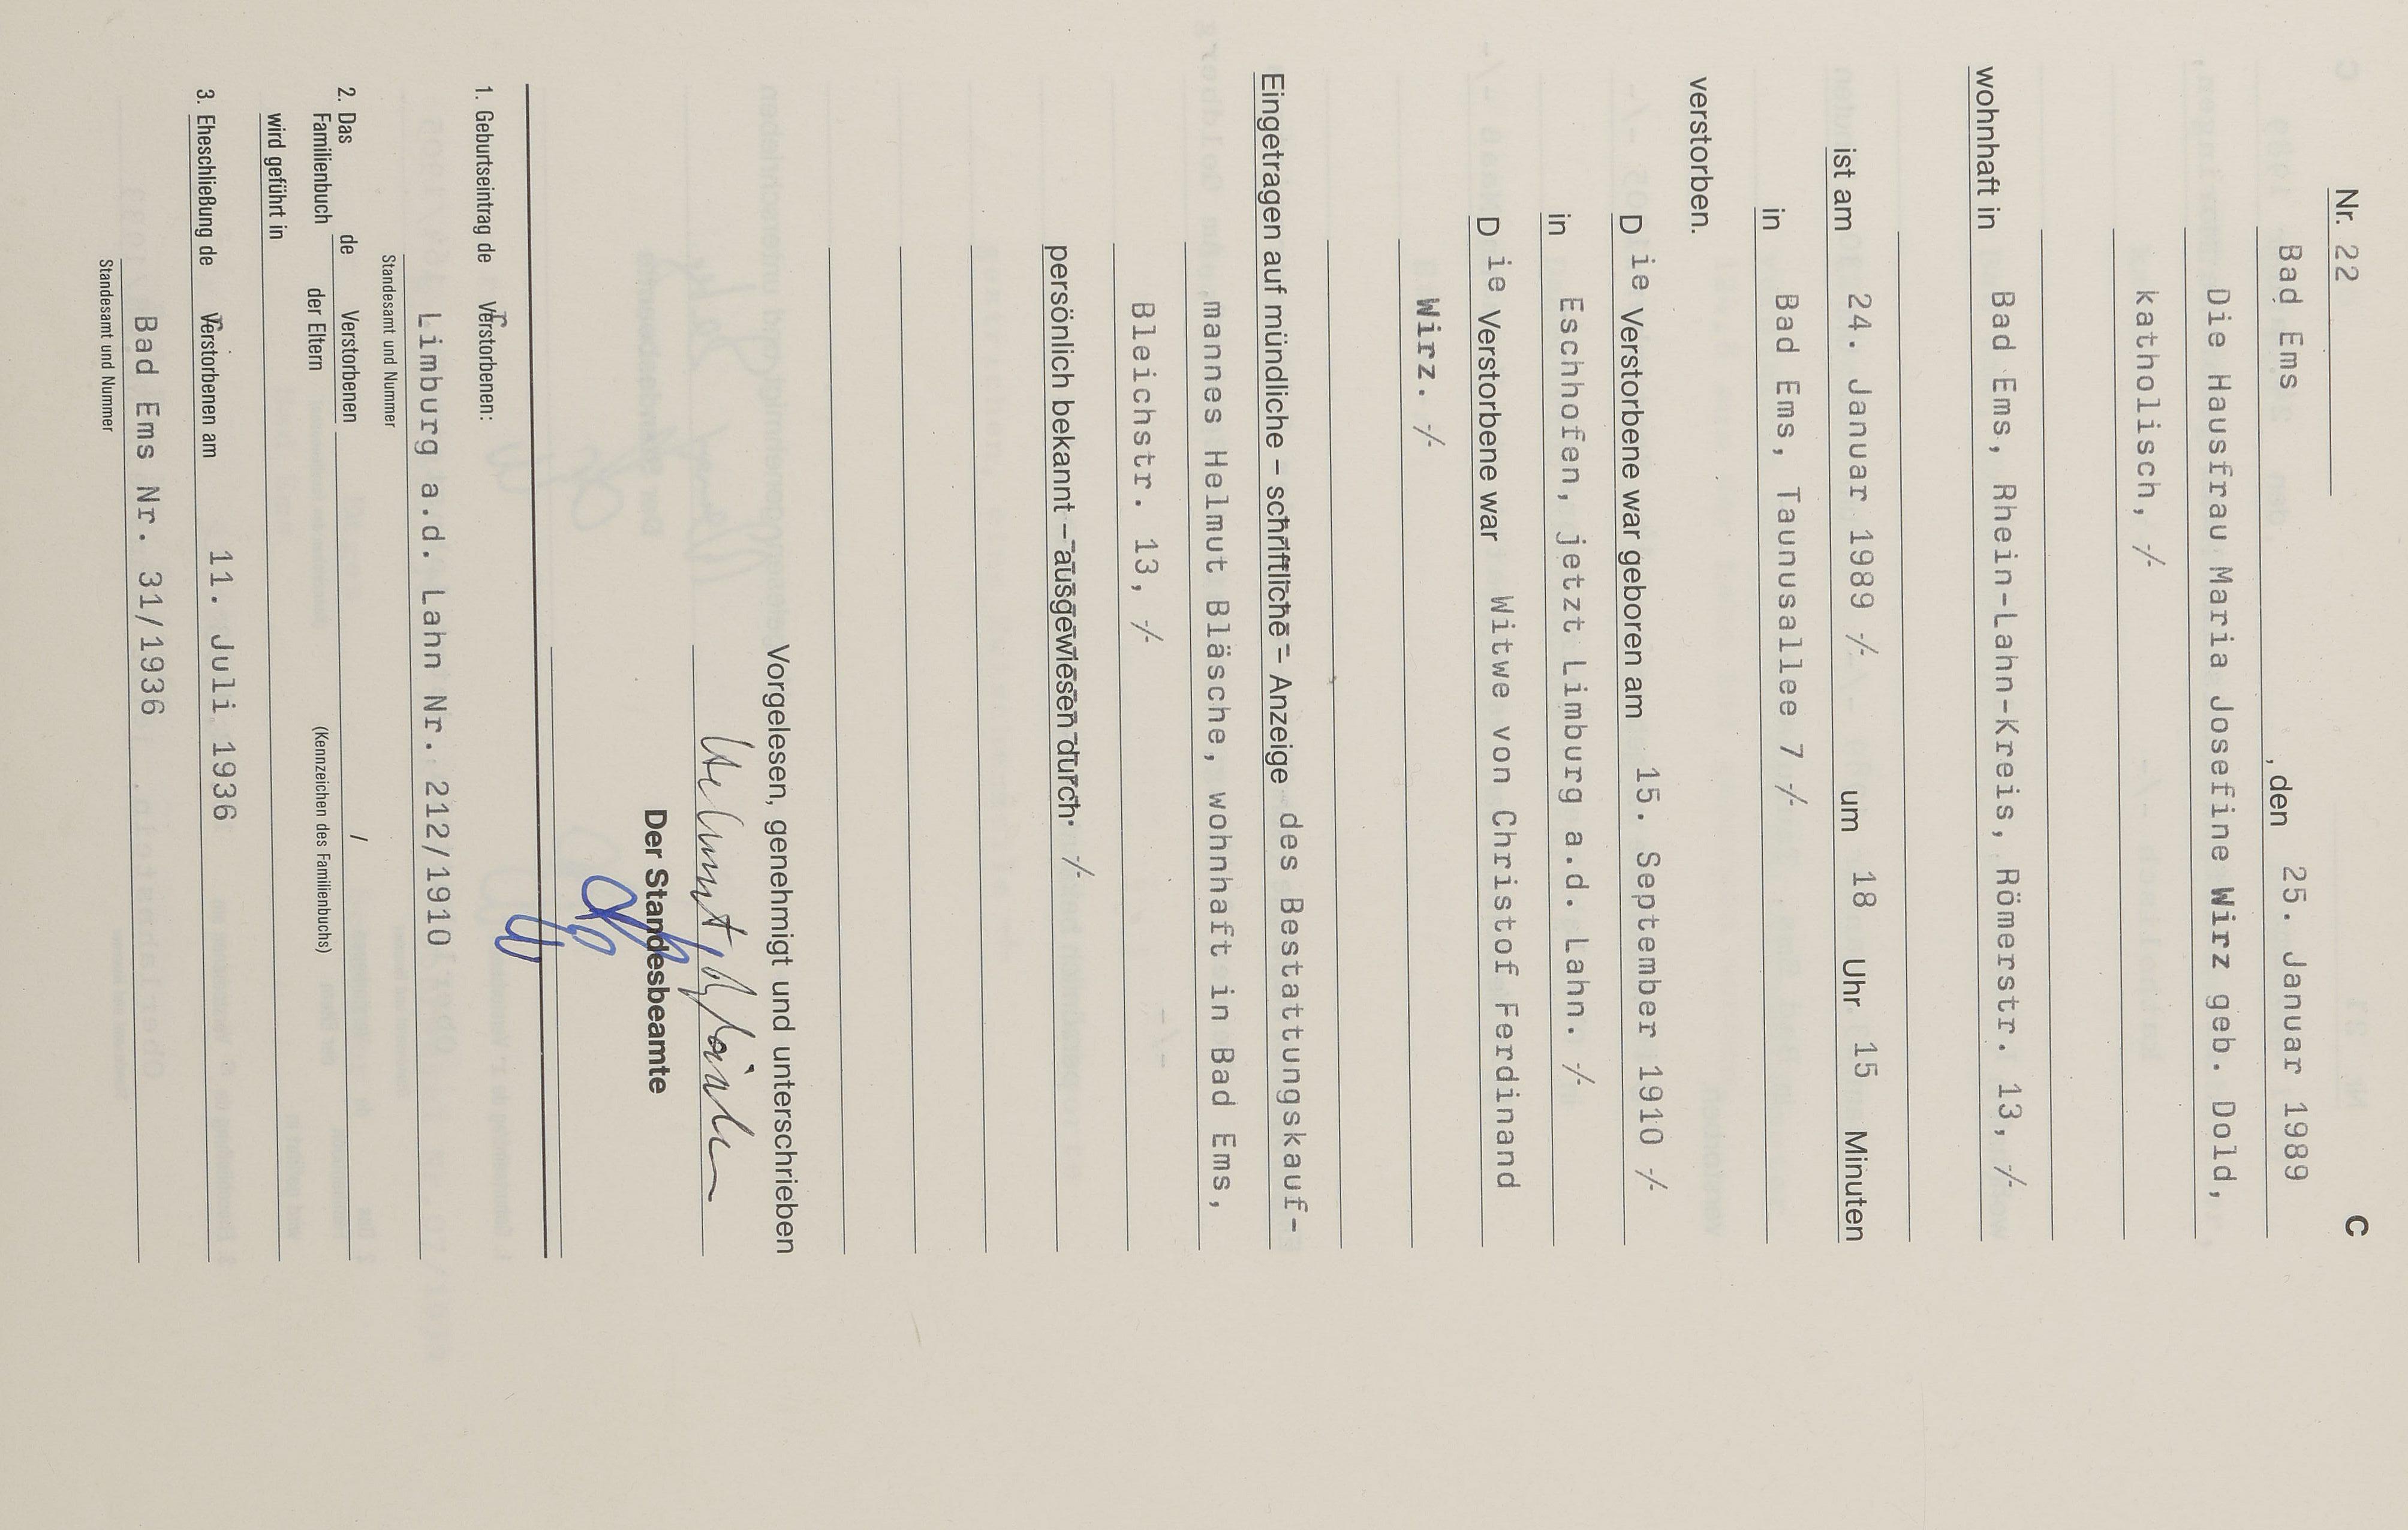 C
Nr. 22
Bad Ems , den 25. Januar 1989
Die Hausfrau Maria Josefine Wirz geb. Dold,
katholisch, -/-
wohnhaft in Bad Ems, Rhein-Lahn-Kreis, Römerstr. 13, -/-
ist am 24. Januar 1989 -/- um 18 Uhr 15 Minuten
in Bad Ems, Taunusallee 7 -/-
verstorben.
D ie Verstorbene war geboren am 15. September 1910 -/-
in Eschhofen, jetzt Limburg a.d. Lahn. -/-
D ie Verstorbene war Witwe von Christof Ferdinand
Wirz. -/-
Eingetragen auf mündliche – schriftliche – Anzeige des Bestattungskauf-
mannes Helmut Bläsche, wohnhaft in Bad Ems,
Bleichstr. 13, -/-
persönlich bekannt – ausgewiesen durch. -/-
Vorgelesen, genehmigt und unterschrieben
Helmut Bläsche
Der Standesbeamte
1. Geburtseintrag de r Verstorbenen:
Limburg a.d. Lahn Nr. 212/1910
Standesamt und Nummer
2. Das Familienbuch de Verstorbenen der Eltern /
(Kennzeichen des Familienbuchs)
wird geführt in
3. Eheschließung de r Verstorbenen am 11. Juli 1936
Bad Ems Nr. 31/1936
Standesamt und Nummer